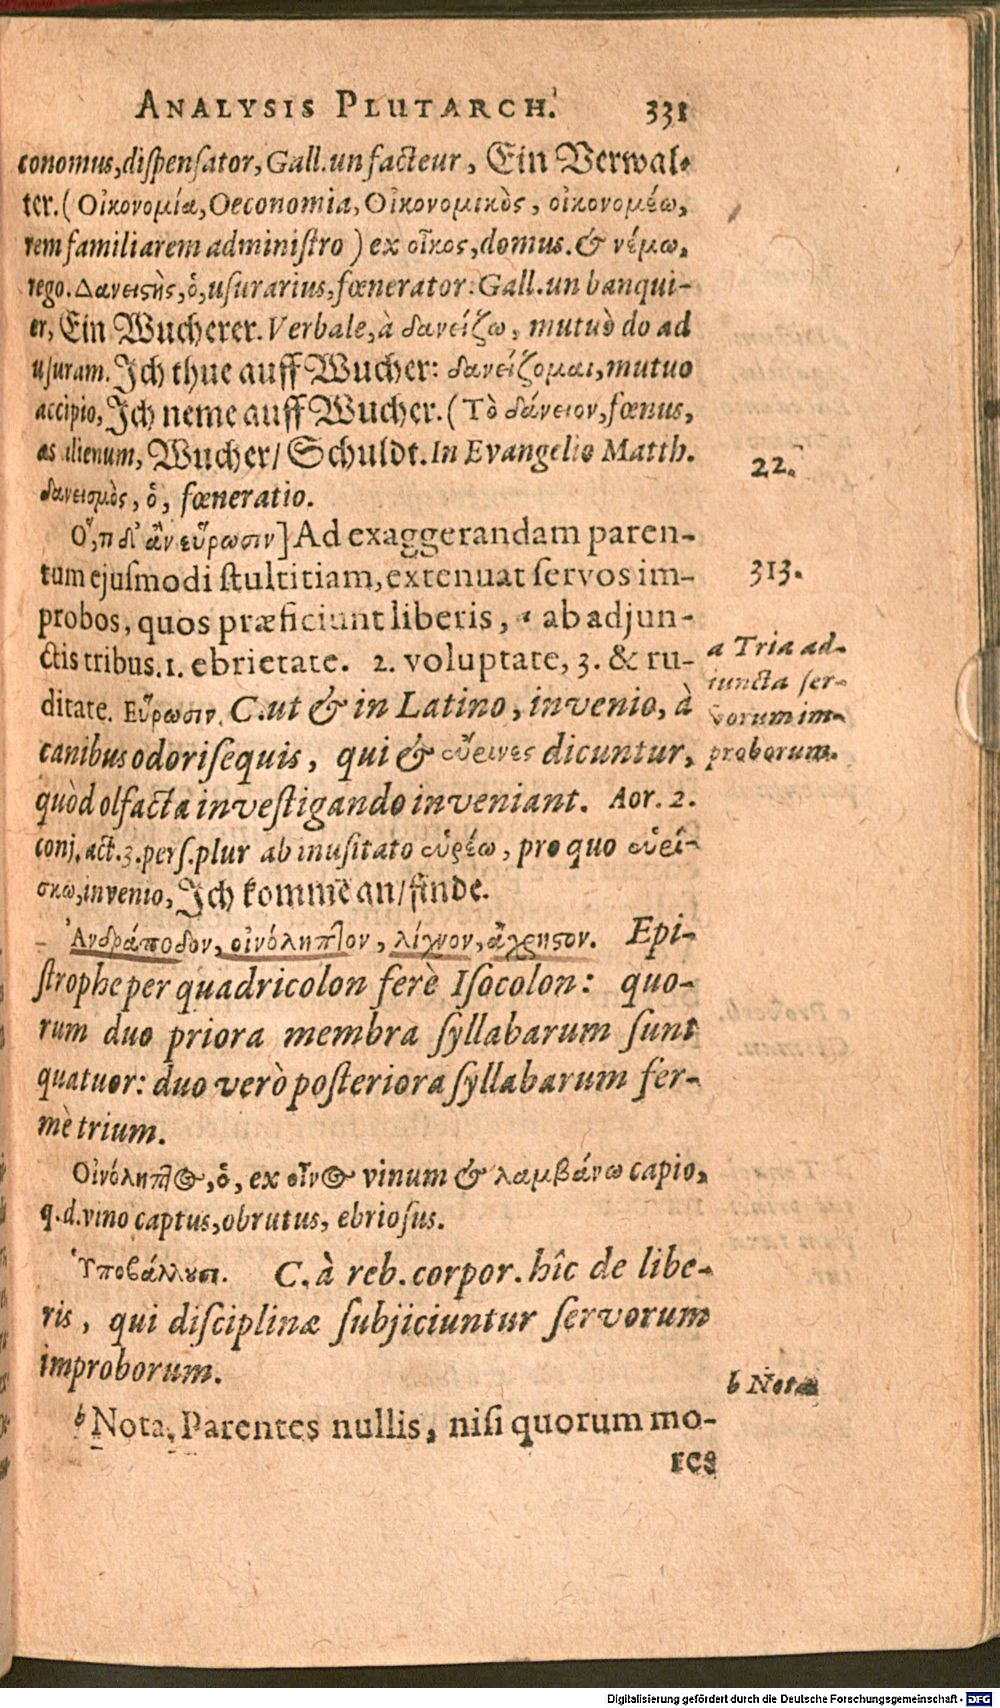 ANALYSIS PLUTARCH. 331
conomus, dispensator, Gall. un facteur, Ein Verwal-
ter. (Οἰκονομία, Oeconomia, Οἰκονομικὸς, οἰκονομέω,
rem familiarem administro) ex οἶκος, domus. & νέμω,
rego. Δανειϛὴς, ὁ, usurarius, fœnerator: Gall. un banqui-
er, Ein Wucherer. Verbale, à δανείζω, mutuò do ad
usuram. Ich thue auff Wucher: δανείζομαι, mutuo
accipio, Ich neme auff Wucher. (Τὸ δάνειον, fœnus,
æs alienum, Wucher/ Schuldt. In Evangelio Matth.
22.
δανεισμὸς, ὁ, fœneratio.
Ὅ, τι δ' ἂν εὕρωσιν] Ad exaggerandam paren-
tum ejusmodi stultitiam, extenuat servos im-
313.
probos, quos præficiunt liberis, a ab adjun-
ctis tribus. 1. ebrietate. 2. voluptate, 3. & ru-
a Tria ad-
iuncta ser-
vorum im-
proborum.
ditate. Εὕρωσιν. C. ut & in Latino, invenio, à
canibus odorisequis, qui & εὕρινες dicuntur,
quòd olfacta investigando inveniant. Aor. 2.
conj. act. 3. pers. plur ab inusitato εὑρέω, pro quo εὑρί-
σκω, invenio, Ich komme an/ finde.
Ἀνδράποδον, οἰνόληπτον, λίχνον, ἄχρηστον. Epi-
strophe per quadricolon ferè Isocolon: quo-
rum duo priora membra syllabarum sunt
quatuor: duo verò posteriora syllabarum fer-
mè trium.
Οἰνόληπτος, ὁ, ex οἶνος vinum & λαμβάνω capio,
q. d. vino captus, obrutus, ebriosus.
Ὑποβάλλουσι. C. à reb. corpor. hîc de libe-
ris, qui disciplinæ subjiciuntur servorum
improborum.
b Nota
b Nota, Parentes nullis, nisi quorum mo-
res
Digitalisierung gefördert durch die Deutsche Forschungsgemeinschaft - DFG